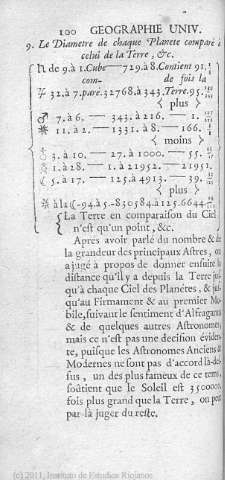 100 GEOGRAPHIE UNIV.
9. Le Diametre de chaque Planete comparé à
celui de la Terre, &c.
♄ de 9. à 1. Cube — 729. à 8. Contient 91.
com- de fois la
♃ 32. à 7. paré. 32768. à 343. Terre. 95.
{ plus }
♂ 7. à 6. — 343. à 216. — 1.
11. à 2. — 1331. à 8. — 166.
{ moins }
3. à 10. — 27. à 1000. — 55.
1. à 28. — 1. à 21952. — 21952.
☾ 5. à 17. — 125. à 4913. — 39.
{ plus }
à la ☾ -94. à 5. - 830584. à 125. 6644.
{ La Terre en comparaison du Ciel
n'est qu'un point, &c.
Après avoir parlé du nombre & de
la grandeur des principaux Astres, on
a jugé à propos de donner ensuite la
distance qu'il y a depuis la Terre jus-
qu'à chaque Ciel des Planétes, & jus-
qu'au Firmament & au premier Mo-
bile, suivant le sentiment d'Alfraganus
& de quelques autres Astronomes,
mais ce n'est pas une decision éviden-
te, puisque les Astronomes Anciens &
Modernes ne sont pas d'accord là-des-
sus, un des plus fameux de ce tems,
soûtient que le Soleil est 350000.
fois plus grand que la Terre, on peut
par-là juger du reste.
(c) 2011, Instituto de Estudios Riojanos